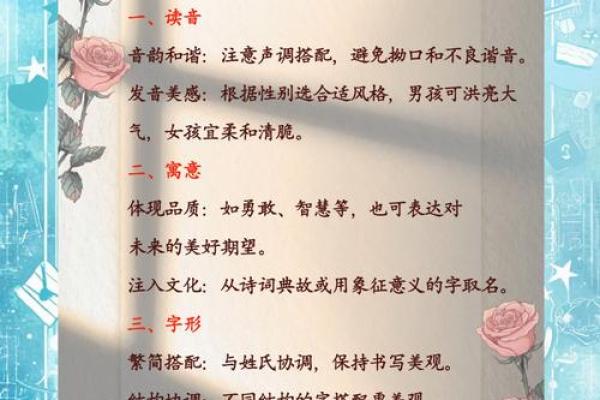 一、读音
音韵和谐：注意声调搭配，避免拗口和不良谐音。
发音美感：根据性别选合适风格，男孩可洪亮大
气，女孩宜柔和清脆。
二、寓意
体现品质：如勇敢、智慧等，也可表达对
未来的美好期望。
注入文化：从诗词典故或用象征意义的字取名。
三、字形
繁简搭配：与姓氏协调，保持书写美观。
结构协调：不同结构的字搭配更美观。